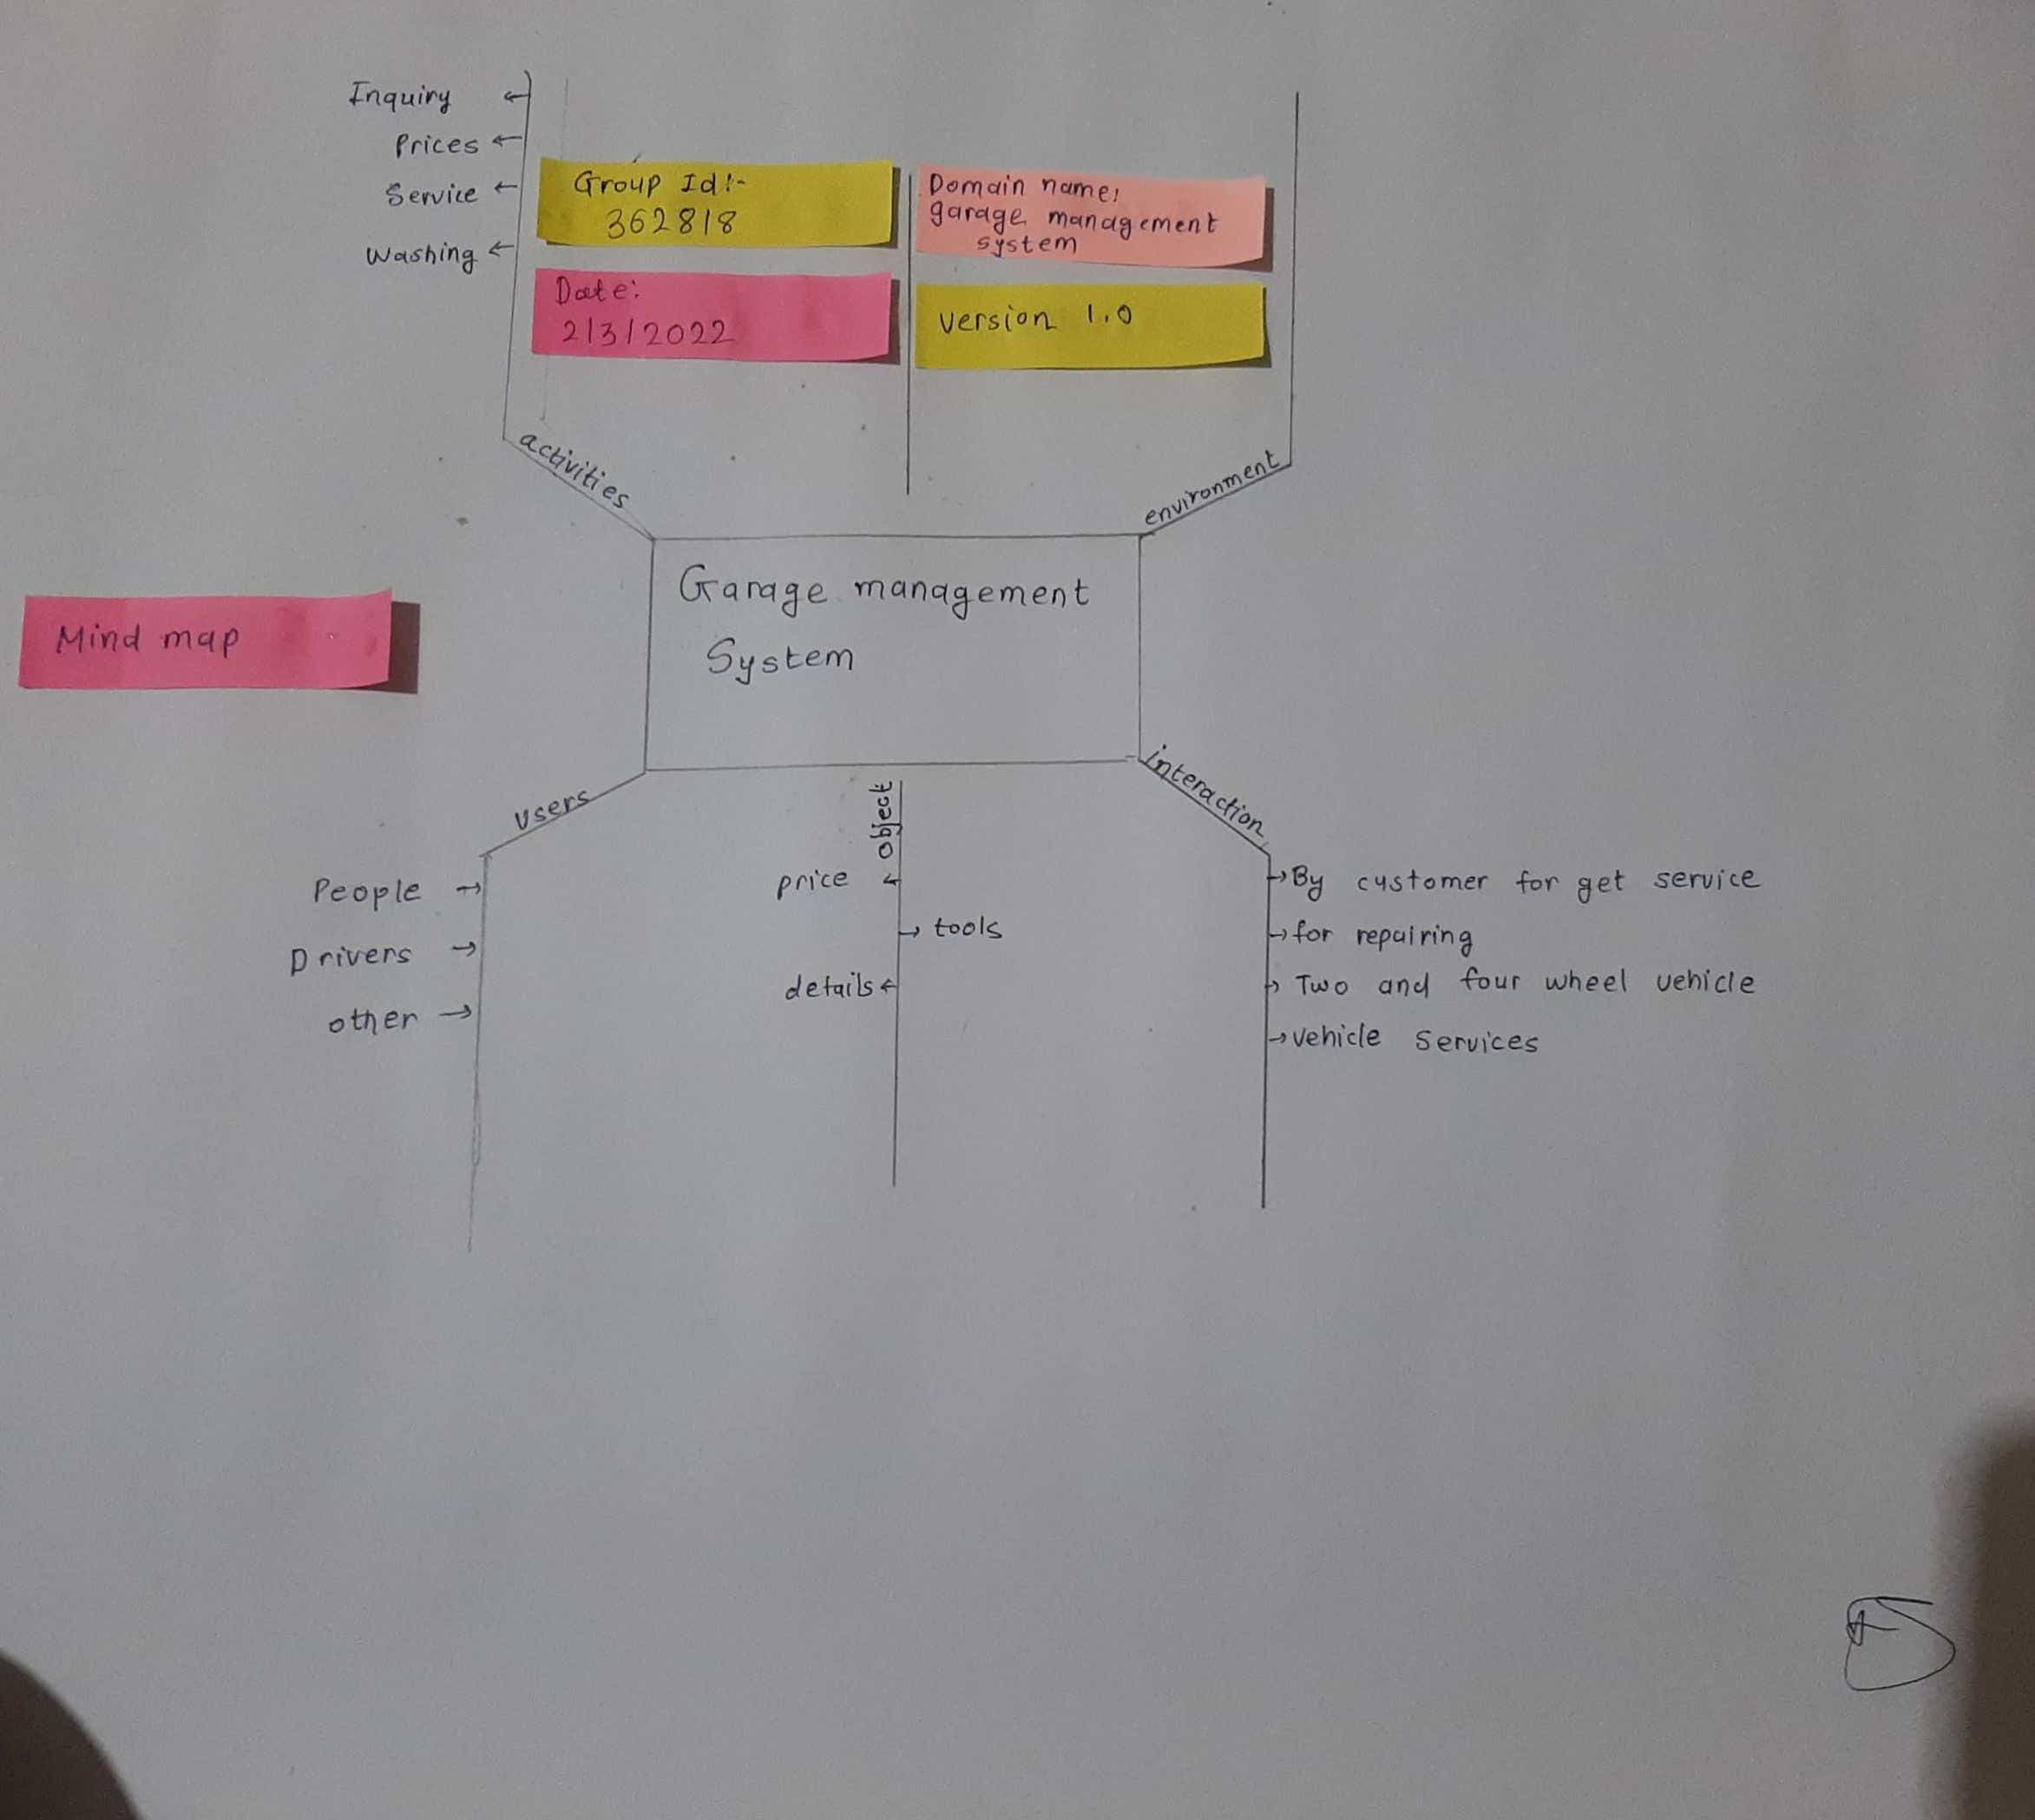 Inquiry
Prices
Service
Washing
Group Id:-
362818
Domain name:
garage management
system
Date:
2/3/2022
version 1.0
activities
environment
Garage management
System
Mind map
users
object
interaction
People
Drivers
other
price
tools
details
By customer for get service
for repairing
Two and four wheel vehicle
vehicle services